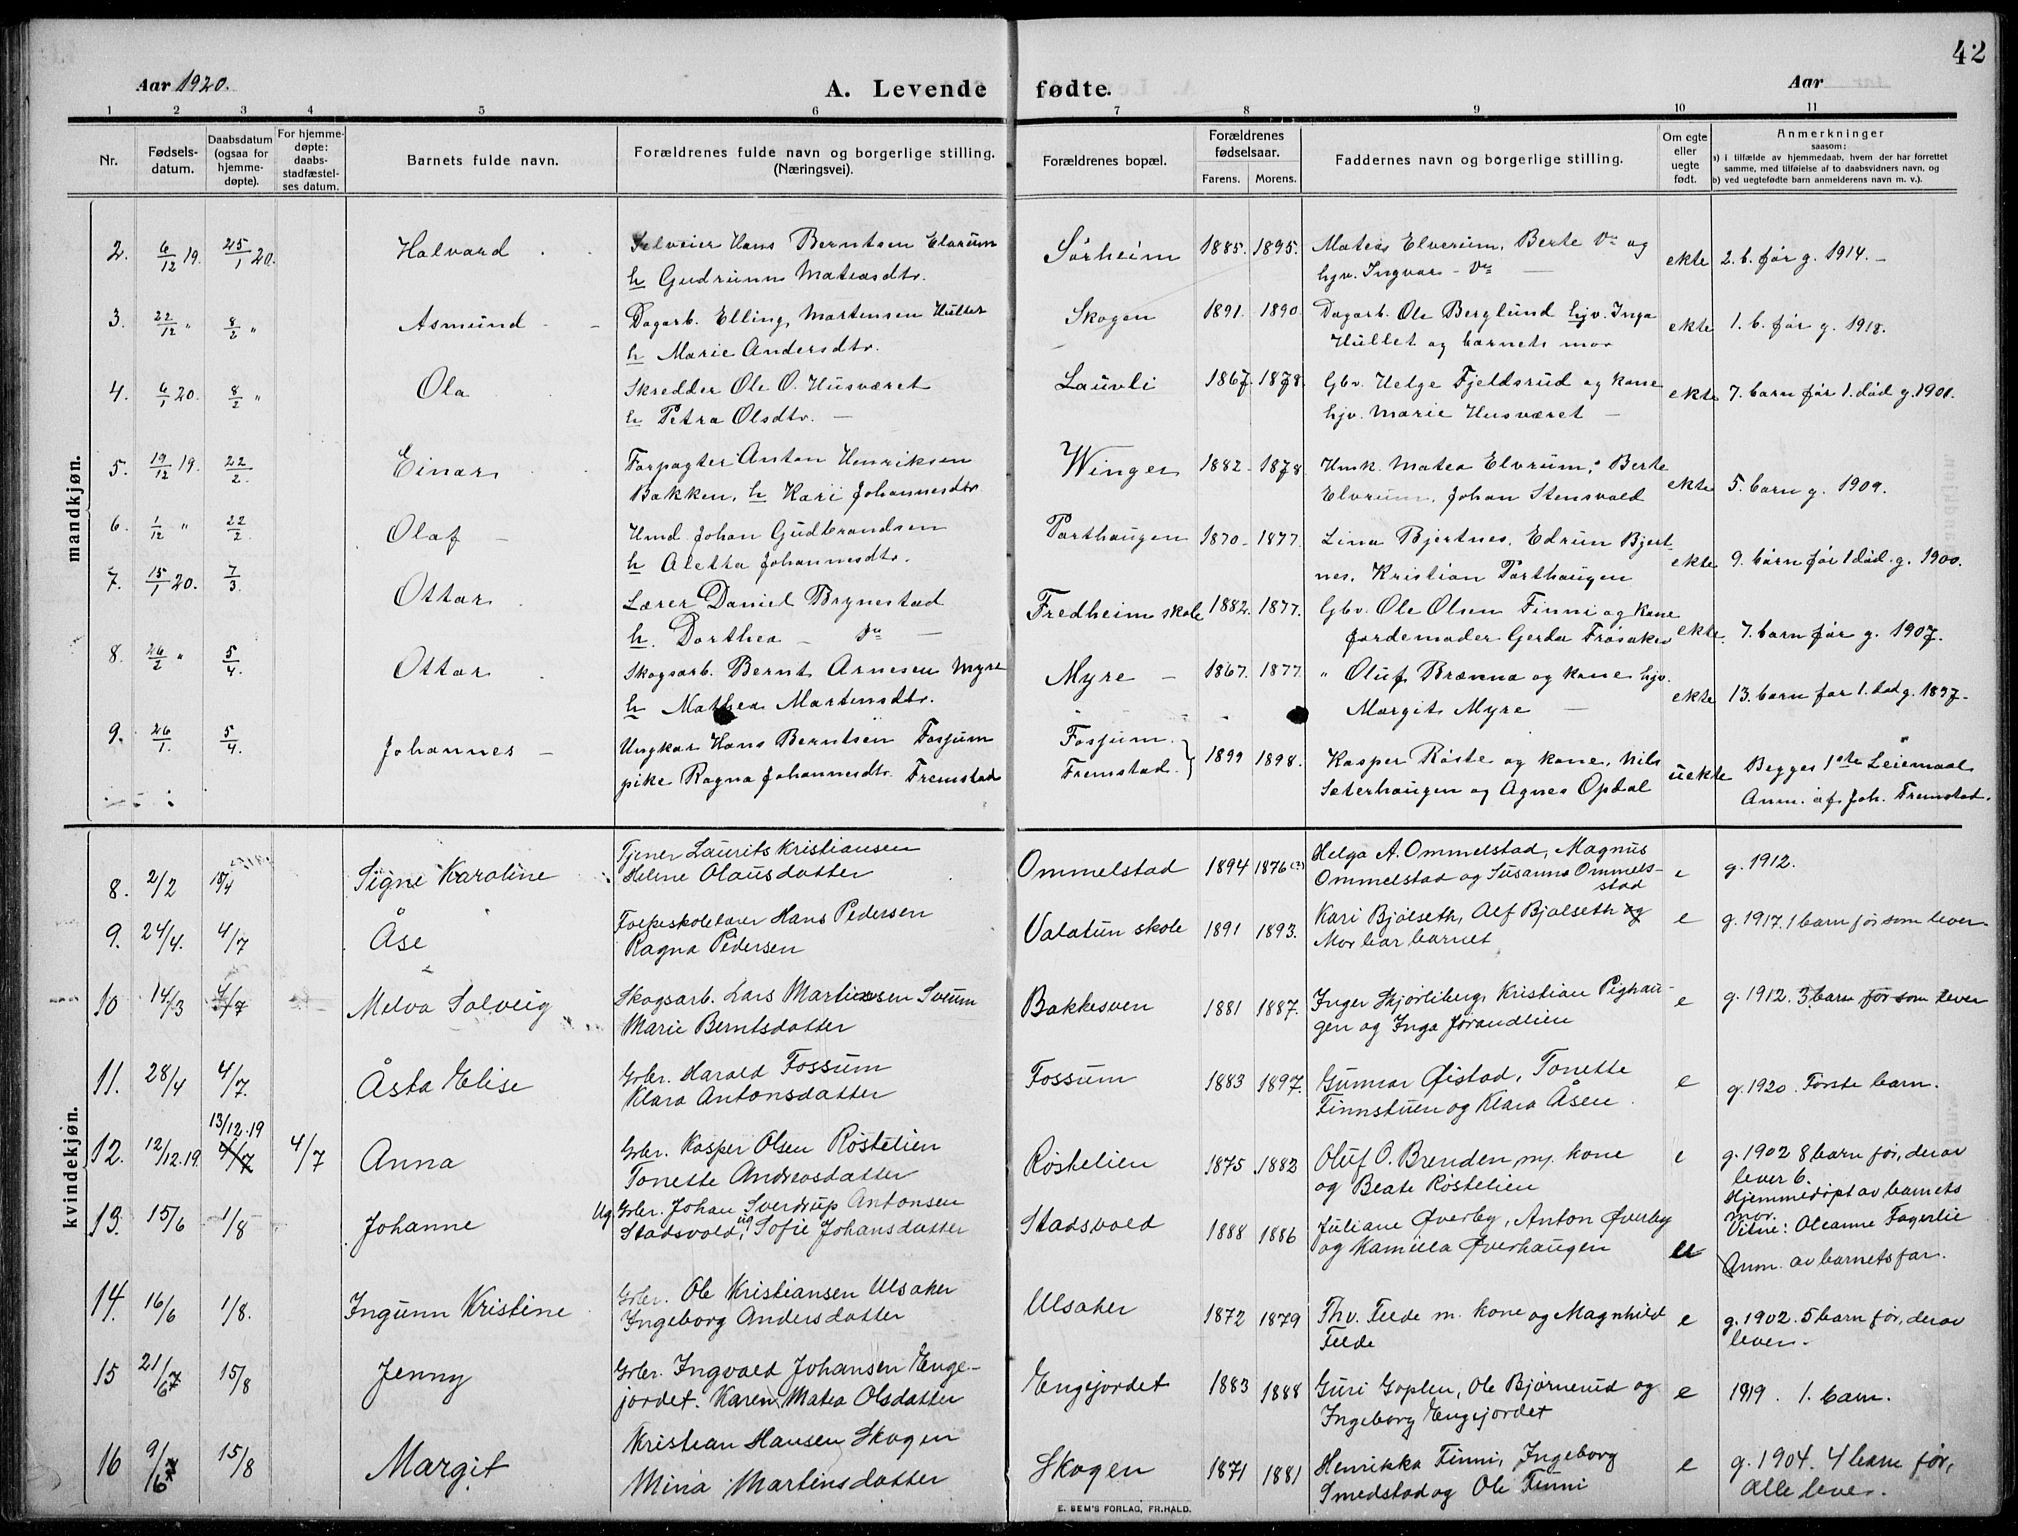 42
Aar 1920.
A. Levende fødte.
Aar
1 2 3 4 5 6 7 8 9 10 11
Nr.
Fødsels-
datum.
Daabsdatum
(ogsaa for
hjemme-
døpte).
For hjemme-
døpte:
daabs-
stadfæstel-
ses datum.
Barnets fulde navn.
Forældrenes fulde navn og borgerlige stilling.
(Næringsvei).
Forældrenes bopæl.
Forældrenes
fødselsaar.
Farens. Morens.
Faddernes navn og borgerlige stilling.
Om egte
eller
uegte
født.
Anmerkninger
saasom:
a) i tilfælde av hjemmedaab, hvem der har forrettet
samme, med tilføielse af to daabsvidners navn, og
b) ved uegtefødte barn anmelderens navn m. v.).
mandkjøn.
2. 6/12 19. 25/1 20. Halvard
Selveier Hans Berntsen Elvrum
h Gudrunn Mateasdtr.
Sørheim 1885. 1895.
Mateas Elverum, Berte Do og
hjv. Ingvar - Do
ekte 2. b. før g. 1914. -
3. 22/12 " 8/2 " Asmund -
Dagarb. Elling Martensen Hullet
h Marie Andersdtr.
Skogen 1891. 1890.
Dagarb. Ole Berglund hjv. Inga
Hullet og barnets mor
ekte 1. b. før g. 1918.
4. 6/1 20. 8/2 " Ola
Skredder Ole O. Husværet
h Petra Olsdtr. -
Lauvli 1867. 1878.
Gbr. Helge Fjeldsrud og kone
hjv. Marie Husværet -
ekte 7. barn før 1. død g. 1901.
5. 19/12 19. 22/2. Einar
Forpagter Anton Henriksen
Bakken, h Kari Johannesdtr
Winger 1882 - 1878
Hmk. Matea Elvrum, Berte
Elvrum, Johan Stensvold
ekte 5. barn g. 1909.
6. 1/12 " 22/2. Olaf -
Hmd. Johan Gudbrandsen
h Aletta Johannesdtr.
Porthaugen 1870 - 1877.
Lina Bjertnes, Edrun Bjert-
nes, Kristian Porthaugen
ekte 9. barn før 1 død. g. 1900.
7. 15/1 20. 7/3. Ottar
Lærer Daniel Brynestad
h. Dorthea - Do -
Fredheim skole 1882. 1877.
Gbr. Ole Olsen Finni og kone
jordemoder Gerda Frøsaker
ekte. 7. barn før g. 1907.
8. 26/2 " 5/4. Ottar
Skogsarb. Bernt Arnesen Myre
h Mathea Martensdtr.
Myre - 1867. 1877.
" Oluf Brænna og kone hjv.
Margit Myre -
ekte 13. barn før 1. død g. 1897.
9. 26/1. 5/4. Johannes -
Ungkar Hans Berntsen Fossum
pike Ragna Johannesdtr. Fremstad
Fossum.
Fremstad. } 1899 1898.
Kasper Røste og kone, Nils
Sæterhaugen og Agnes Opdal
uekte Begges 1ste Leiemaal
Anm. af Joh. Fremstad.
kvindekjøn.
8. 2/2 18/4 Signe Karoline
Tjener Laurits Kristiansen
Helene Olausdatter
Ommelstad 1894 1876(?)
Helga A. Ommelstad, Magnus
Ommelstad og Susanna Ommels-
stad
e g. 1912.
9. 24/4. 4/7 Åse
Folkeskolelærer Hans Pedersen
Ragna Pedersen
Valatun skole 1891 1893.
Kari Bjølseth, Alf Bjølseth og
Mor bar barnet
e g. 1917. 1 barn før som lever
10 14/3 4/7 Melva Solveig
Skogsarb. Lars Martinsen Sveum
Marie Berntsdatter
Bakkesven 1881 1887.
Inger Skjørliberg, Kristian Pighau-
gen og Inga Jørandlien
e g. 1912. 3 barn før som lever
11. 28/4 4/7. Åsta Elise
Gbr. Harald Fossum
Klara Antonsdatter
Fossum 1883 1897.
Gunnar Øistad, Tonette
Finnstuen og Klara Åsen.
e g. 1920. Første barn.
12. 12/12.19. 13/12.19 4/7 4/7 Anna
Gbr. Kasper Olsen Røstelien
Tonette Andreasdatter
Røstelien 1875 1882
Oluf O. Brenden m. kone
og Beate Røstelien
e g. 1902 8 barn før, derav
lever 6.
Hjemmedøpt av barnets
mor.
Vitne: Oleanne Fagerlie
13. 15/6 1/8 Johanne
Ug Gbr. Johan Sverdrup Antonsen
Stadsvold, ug Sofie Johansdatter
Stadsvold 1888 1886
Juliane Øverby, Anton Øverby
og Kamilla Øverhaugen
u Anm. av barnets far.
14. 16/6 1/8. Ingunn Kristine
Gbr. Ole Kristiansen Ulsaker
Ingeborg Andersdatter
Ulsaker 1872 1879
Thv. Felde m. kone og Magnhild
Felde
e g. 1902. 5 barn før, derav
lever.
15 21/6 15/8 Jenny
Gbr. Ingvald Johansen Enge-
jordet. Karen Matea Olsdatter
Engejordet 1883 1888
Guri Goplen, Ole Bjørnerud og
Ingeborg Engejordet
e 1919. 1. barn.
16 9/6 15/8 Margit
Kristian Hansen Skogen
Mina Martinsdatter
Skogen 1871 1881
Henrikka Finni, Ingeborg
Smedstad og Ole Finni
e g. 1904. 4 barn før,
alle lever.
E. SEM'S FORLAG, FR.HALD.